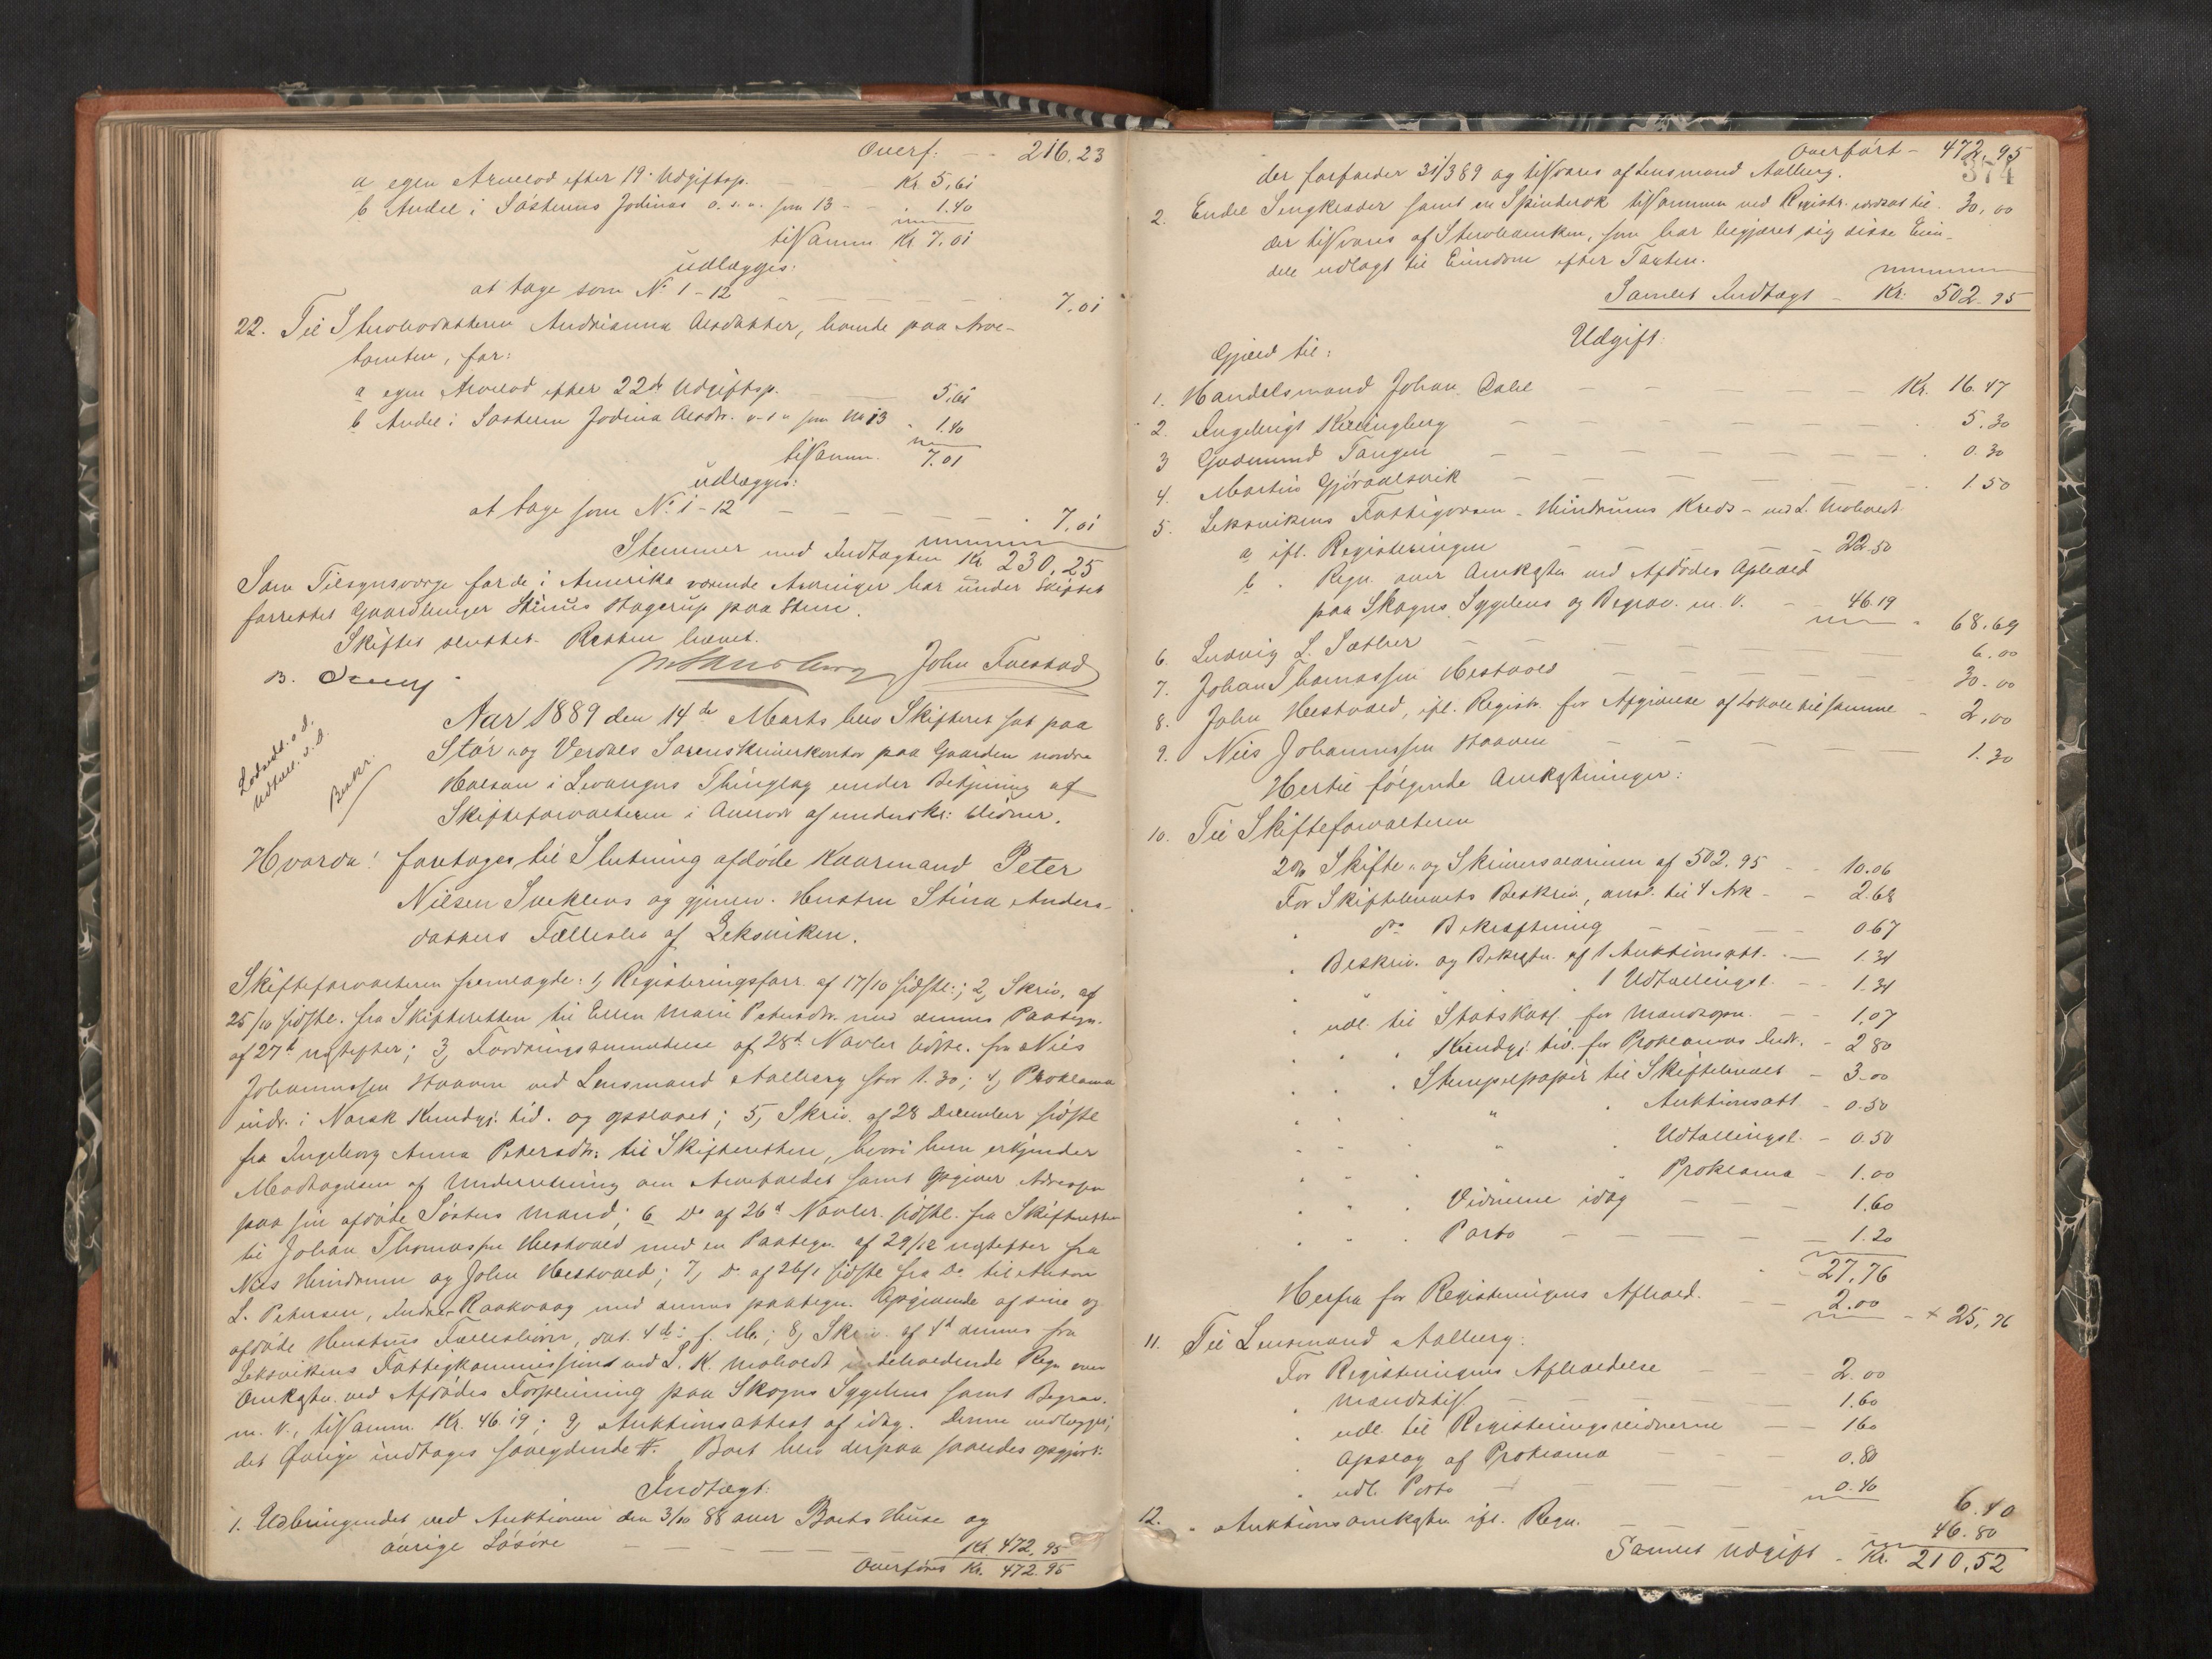 Overf. - - 216.23
a egen Arvelod efter 19. Udgiftsp. - - Kr. 5,61
b Andel i Søsteren Jodines o. s. v. som 13 - - 1.40
tilsammen Kr. 7.01
udlægges:
at tage som No 1-12 - - - - 7.01
22. Til Stervboets Andrianna Olsdatter, boende paa Arve-
tomten, for:
a egen Arvelod efter 22de Udgiftsp. 5,61
b Andel i Søsteren Jodina Olsdtr. o. s. v som No 13 - 1.40
tilsamm. 7.01
udlægges:
at tage som No 1-12 - - - - 7.01
Stemmer med Indtægten Kr. 230.25
Som Tilsynsværge for de i Amerika værende Arvinger har under Skiftet
forrettet Gaardbruger Stinus Hagerup paa Stene.
Skiftet sluttet. Retten hævet.
B. John Fuestad
Lodsedd. o d.
Udtell. s. d.
Beskr.
Aar 1889 den 14de Marts blev Skifteret sat paa
Stør- og Verdals Sorenskriverkontor paa Gaarden nordre
Halsan i Levangers Thinglag under Betjening af
Skifteforvalteren i Overvær af underskr: Vidner.
Hvorda! foretoges til Slutning afdøde Kaarmand Peter
Nielsen Sveklevs og gjenlev. Hustru Stina Anders-
datters Fællesbo af Leksviken.
Skifteforvalteren fremlagde: 1, Registeringsforr. af 17/10 sidstl.; 2, Skriv. af
25/10 sidstl. fra Skifteretten til Ellen Marie Petersdtr. med dennes Paategn.
af 27de næstefter; 3, Fordringsanmeldelse af 28d Novbr sidstl. fra Niels
Johannessen Haaven ved Lensmand Aalberg stor 1.30; 4, Proklama
indr. i Norsk Kundgj. tid. og opslaaet; 5, Skriv. af 28 December sidstl
fra Ingeborg Anna Petersdtr. til Skifteretten, hvori hun erkjender
Modtagelsen af Underretning om Arvefaldet samt opgiver Adressen
paa sin afdøde Søsters Mand; 6 Do af 26d Novbr. sidstl. fra Skifteretten
til Johan Thomassen Hestvold med en Paategn. af 29/12 næstefter fra
Nils Hindrum og John Hestvold; 7, Do af 26/1 sidstl fra Do til Anton
L. Petersen, Indre Raakvaag med dennes paategn. Opgivende af sine og
afdøde Hustrus Fællesbørn, dat. 4de f. M.; 8, Skriv. af 4d dennes fra
Leksvikens Fattigkommission ved L. K. Moholdt indeholdende Regn over
Omkostn. ved Afdødes Forpleining paa Skogns Sygehus samt Begrav.
m. V., tilsamm. Kr. 46.19; 9, Auktionsattest af idag. Denne vedlægges;
det Øvrige indtages saalydende #. Boet blev derpaa saaledes opgjort:
Indtægt:
1. Udbringendet ved Auktionen den 3/10 88 over Boets Huse og
øvrige Løsøre - - - - - Kr. 472.95
Overføres Kr. 472.95
Overført - 472,95
374
der forfalder 31/3 89 og tilsvares af Lensmand Aalberg.
2. Endel Sengklæder samt en Spinderok tilsammen ved Registr. vurderet til 30,00
der tilsvares af Stervboenken, som har begjæret sig disse Eien-
dele udlagt til Eiendom efter Taxten.
Samlet Indtægt - Kr. 502.95
Udgift.
Gjæld til:
1. Handelsmand Johan Dahl - - - Kr. 16.47
2. Ingebrigt Killingberg - - - 5.30
3 Gudmund Tangen - - - 0.30
4. Martin Gjørvelsvik - - - 1.50
5. Leksvikens Fattigvæsen - Hindrums Kreds - ved L. Moholdt
a, ifl. Registeringen - - - 22.50
b . Regn. over Omkostn ved Afdødes Ophold
paa Skogns Sygehus og Begrav. m. V. - - 46.19
68.69
6. Ludvig L. Sæther - - - 6.00
7. Johan Thomassen Hestvold - - - 30.00
8. John Hestvold, ifl. Registr. for Afgivelse af Lokale til samme - 2,00
9. Niels Johannessen Haaven - - - 1.30
Hertil følgende Omkostninger:
10. Til Skifteforvalteren
2% Skifte- og Skriversalarium af 502.95 - - 10.06
For Skiftebrevets Beskriv., ansl. til 4 Ark - - 2.68
" do Bekræftning - - - 0.67
" Beskriv. og Bekræftn. af 1 Auktionsatt. - 1.34
" " " 1 Udtællingsl. - - 1.34
" udl. til Statskass. for Mandsopn. - - 1,07
" " " Kundgj. tid. for Proklamas Indr. - 2 80
" " " Stempelpapir til Skiftebrevet - 3.00
" " " " Auktionsatt - 0.50
" " " " Udtællingsl. - 0.50
" " " " Proklama - 1.00
" " " Vidnerne idag - - 1.60
" " " Porto - - - 1.20
27.76
Herfra for Registeringens Afhold. - - 2.00 - 25,76
11. Til Lensmand Aalberg:
For Registeringens Afholdelse - - 2.00
" Mandstils. - - - 1.60
" udl. til Registeringsvidnerne - - 1 60
" Opslag af Proklama - - - 0.80
" udl. Porto - - - 0.40
6.40
12. " Auktionsomkostn. ifl. Regn. - - - 46.80
Samlet Udgift - Kr. 210.52